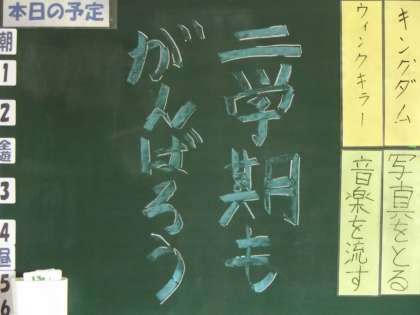 本日の予定
朝
1
2
全遊
3
4
昼
5
6
二学期も
がんばろう
キングダム
ウィンクキラー
写真をとる
音楽を流す